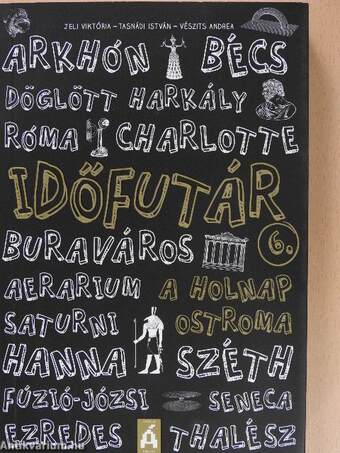 JELI VIKTÓRIA – TASNÁDI ISTVÁN – VÉSZITS ANDREA
ARKHÓN BÉCS
DÖGLÖTT HARKÁLY
RÓMA CHARLOTTE
IDŐFUTÁR
6.
BURAVÁROS
AERARIUM A HOLNAP
SATURNI OSTROMA
HANNA SZÉTH
FÚZIÓ-JÓZSI SENECA
EZREDES Á THALÉSZ
Antikvarium.hu